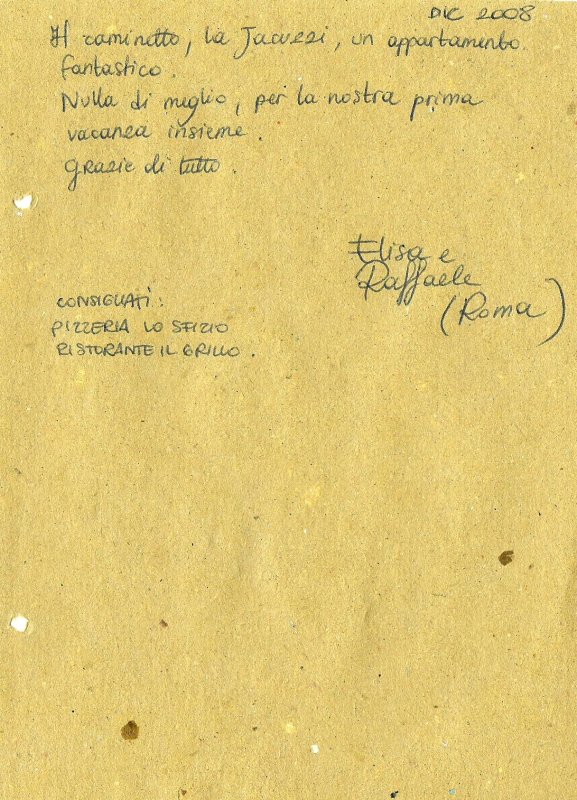 DIC 2008
Il caminetto, la Jacuzzi, un appartamento
fantastico.
Nulla di meglio, per la nostra prima
vacanza insieme.
Grazie di tutto.
Elisa e
Raffaele
(Roma)
CONSIGLIATI:
PIZZERIA LO SFIZIO
RISTORANTE IL GRILLO.